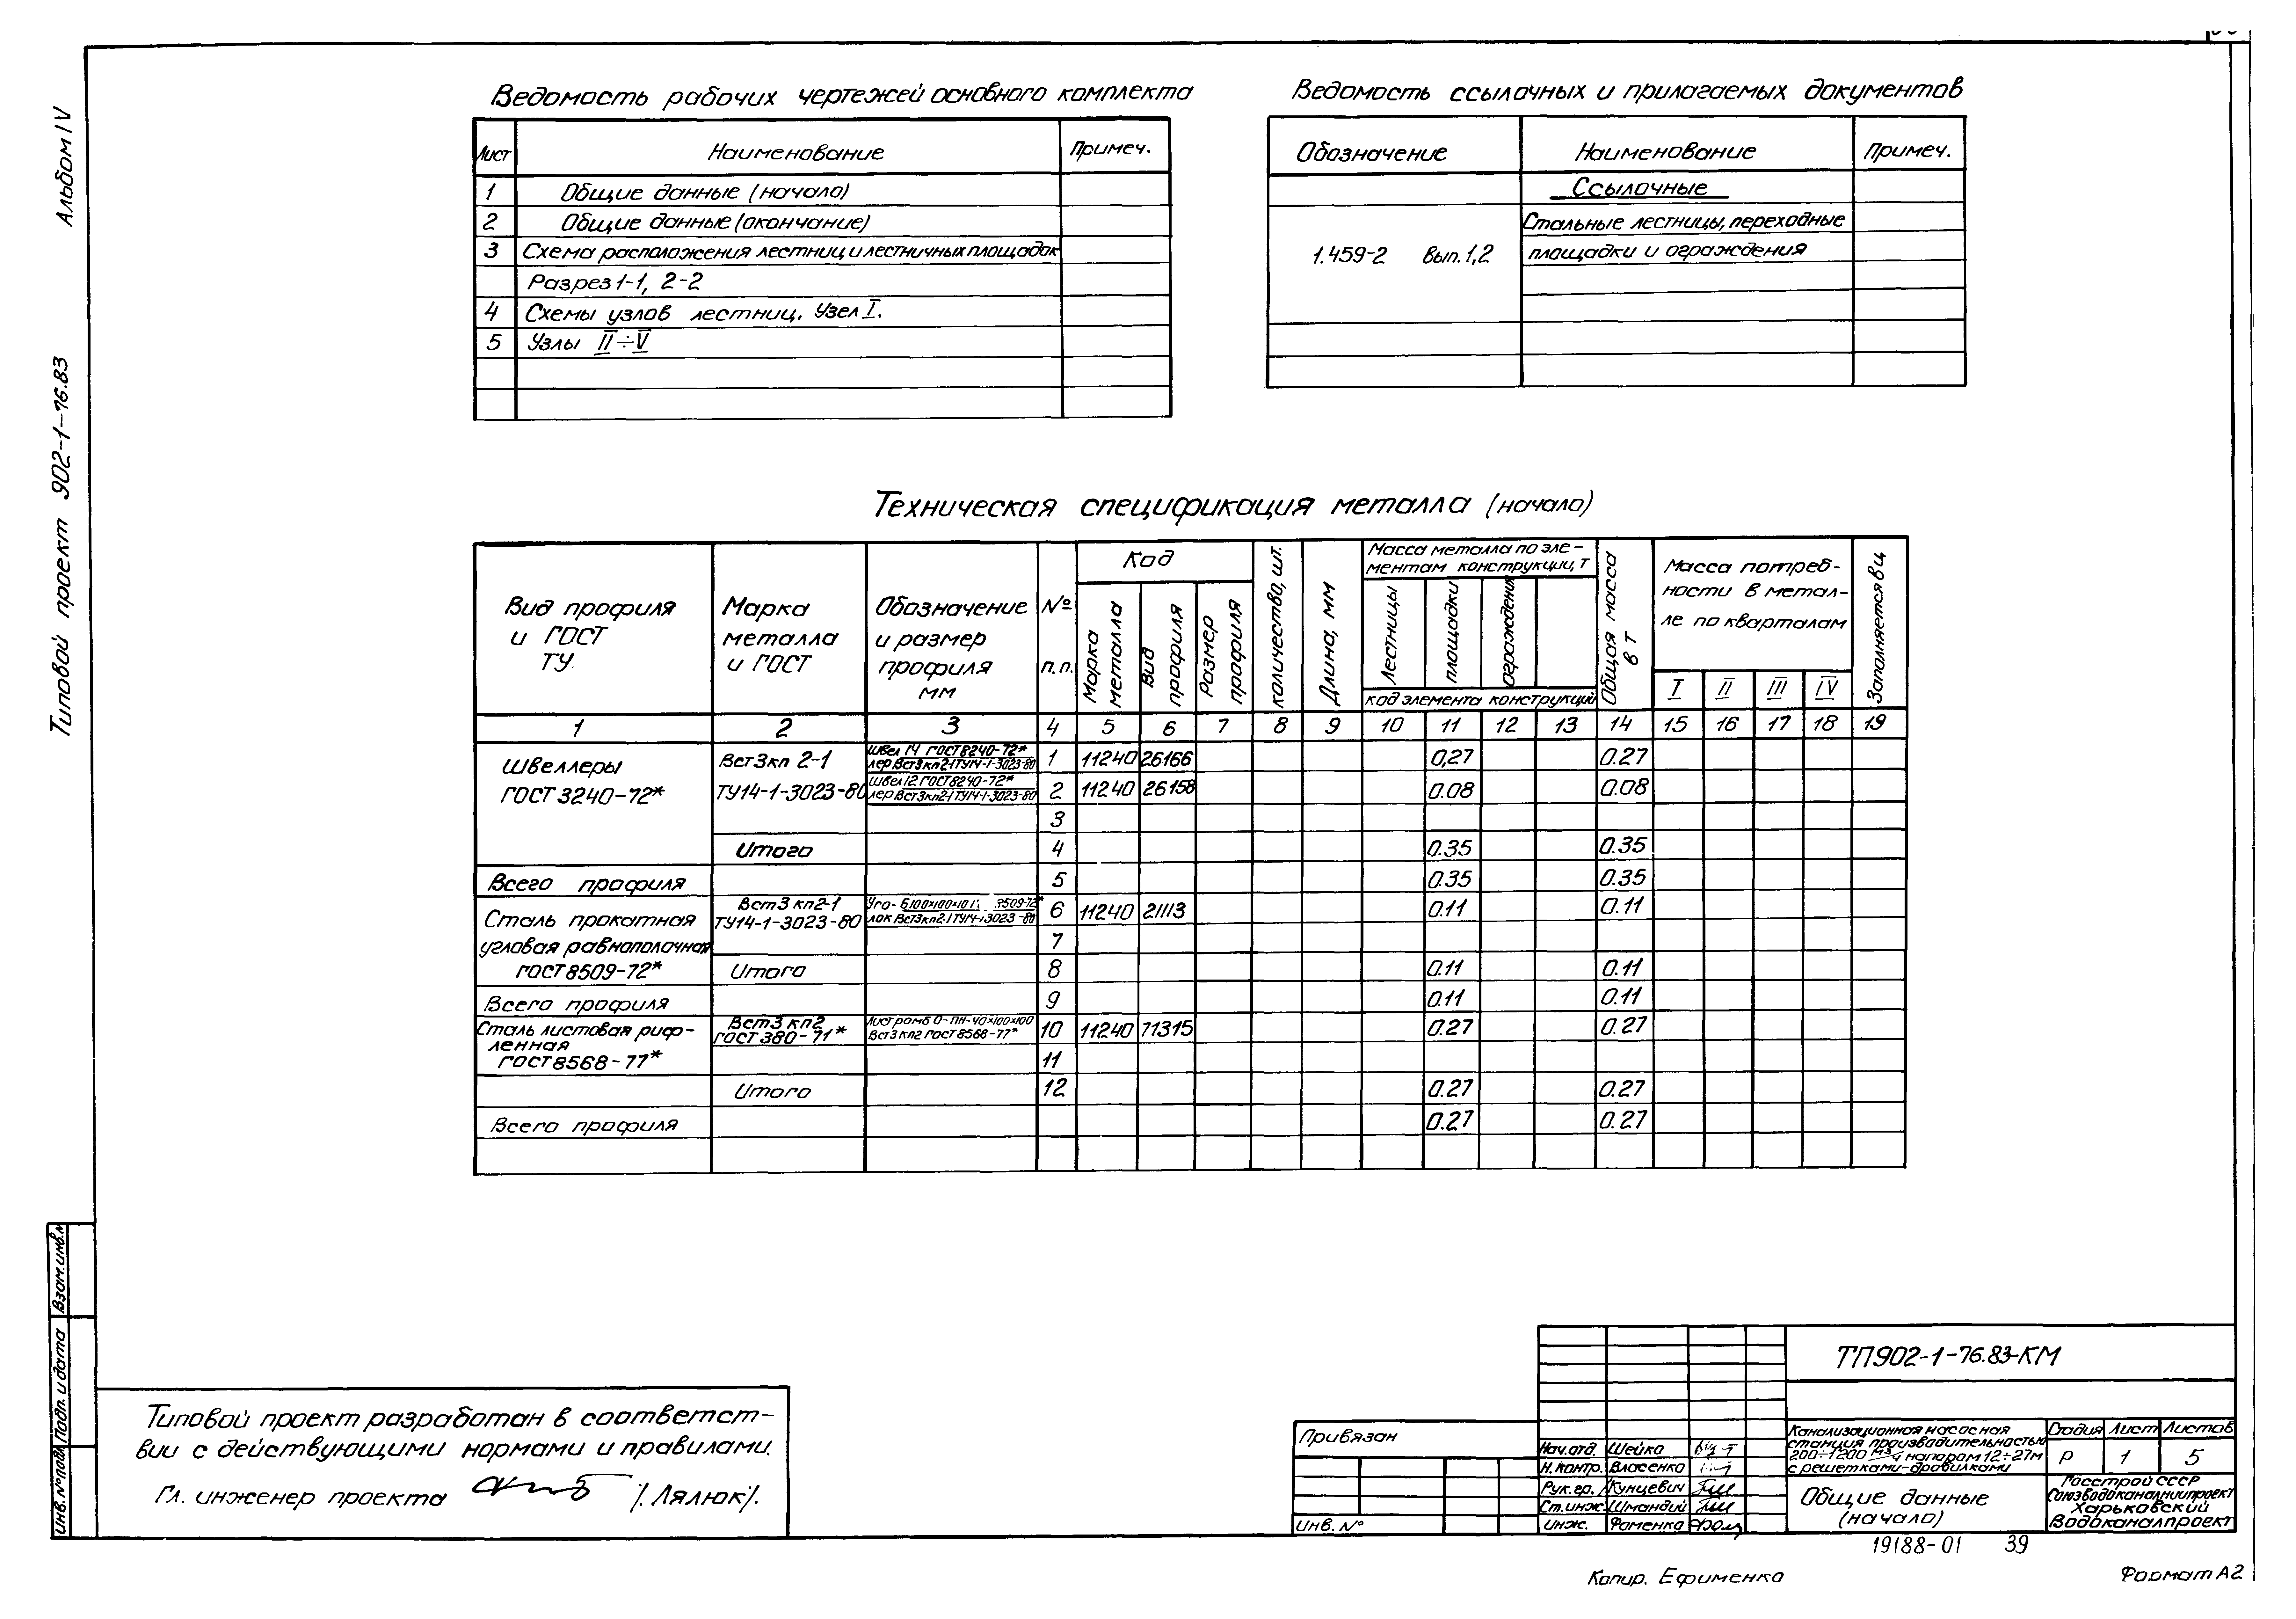 Альбом IV
Типовой проект 902-1-76.83
Ведомость рабочих чертежей основного комплекта
Лист Наименование Примеч.
1 Общие данные (начало)
2 Общие данные (окончание)
3 Схема расположения лестниц и лестничных площадок
Разрез 1-1, 2-2
4 Схемы узлов лестниц. Узел I.
5 Узлы II÷V
Ведомость ссылочных и прилагаемых документов
Обозначение Наименование Примеч.
Ссылочные
Стальные лестницы, переходные
1.459-2 Вып. 1,2 площадки и ограждения
Техническая спецификация металла (начало)
Вид профиля
и ГОСТ
ТУ.
Марка
металла
и ГОСТ
Обозначение
и размер
профиля
мм
№
п.п.
Код
Марка
металла
Вид
профиля
Размер
профиля
количество, шт.
Длина, мм
Масса металла по эле-
ментам конструкции, т
Лестницы
площадки
ограждения
код элемента конструкций
Общая масса
в т
Масса потреб-
ности в метал-
ле по кварталам
I II III IV
Заполняется вц
1 2 3 4 5 6 7 8 9 10 11 12 13 14 15 16 17 18 19
Швеллеры
ГОСТ 3240-72*
Вст3кп 2-1
ТУ14-1-3023-80
Швел 14 ГОСТ 8240-72*
лер Вст3кп2-1 ТУ14-1-3023-80
1 11240 26166 0,27 0.27
Швел 12 ГОСТ 8240-72*
лер Вст3кп2-1 ТУ14-1-3023-80
2 11240 26158 0.08 0.08
3
Итого 4 0.35 0.35
Всего профиля 5 0.35 0.35
Сталь прокатная
угловая равнополочная
ГОСТ 8509-72*
Вст3 кп2-1
ТУ14-1-3023-80
Уго- Б100×100×10 8509-72*
лок Вст3кп2-1 ТУ14-1-3023-80
6 11240 21113 0.11 0.11
7
Итого 8 0.11 0.11
Всего профиля 9 0.11 0.11
Сталь листовая риф-
ленная
ГОСТ 8568-77*
Вст3 кп2
ГОСТ 380-71*
Лист ромб О-ПН-40×100×100
Вст3 кп2 ГОСТ 8568-77*
10 11240 71315 0.27 0.27
11
Итого 12 0.27 0.27
Всего профиля 0.27 0.27
Взам.инв.№
Подп. и дата
Инв.№ подл.
Типовой проект разработан в соответст-
вии с действующими нормами и правилами.
Гл. инженер проекта /Лялюк/.
Привязан
Инв. №
Нач.отд. Шейко
Н.контр. Власенко
Рук.гр. Кунцевич
Ст.инж. Шмандий
инж. Фоменко
ТП902-1-76.83-КМ
Канализационная насосная
станция производительностью
200÷1200 м3/ч напором 12÷27м
с решетками-дробилками
Стадия Лист Листов
Р 1 5
Общие данные
(начало)
Госстрой СССР
Союзводоканалниипроект
Харьковский
Водоканалпроект
19188-01 39
Копир. Ефименко
Формат А2